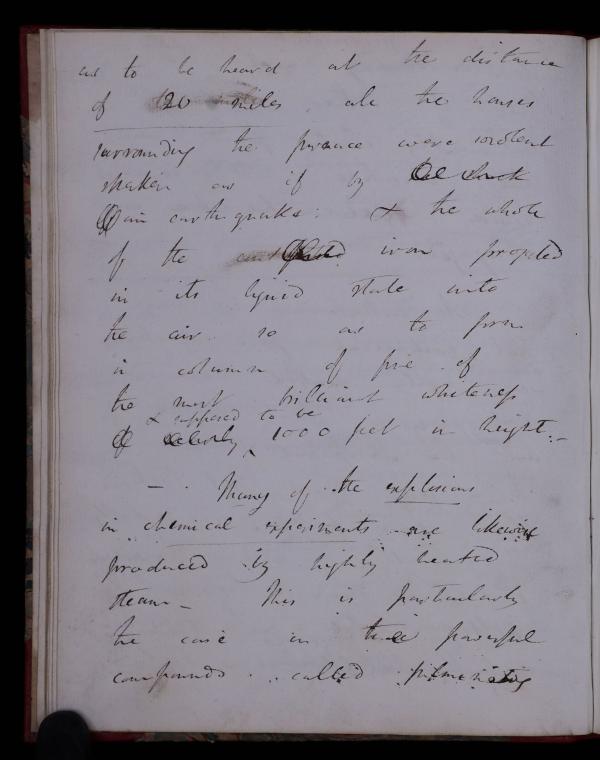 as to be heard at the distance
of 20 miles all the houses
surrounding the furnace were violent
shaken as if by
an earthquake: & the whole
of the iron propelled
in its liquid state into
the air so as to form
a column of fire of
the most brilliant whiteness
& supposed to be
of nearly 1000 feet in height.-
- Many of the explosions
in chemical experiments are likewise
produced by highly heated
steam - This is particularly
the case in those powerful
compounds called fulminating